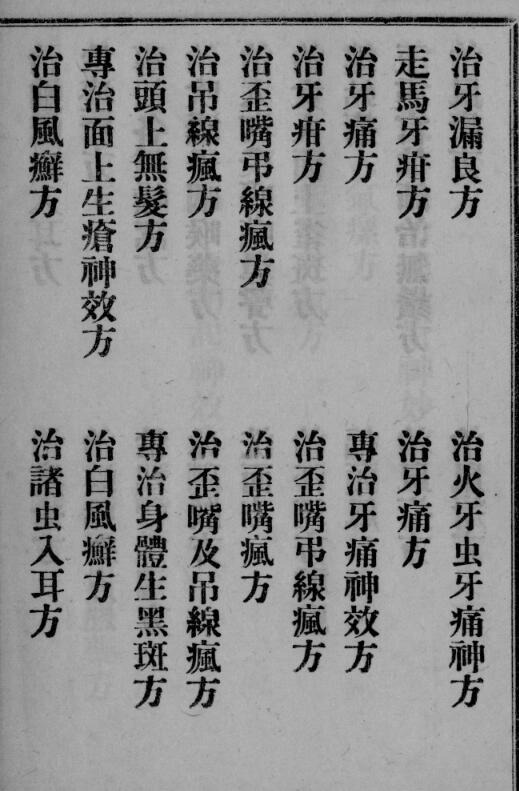 治牙漏良方
治火牙虫牙痛神方
走馬牙疳方
治牙痛方
治牙痛方
專治牙痛神效方
治牙疳方
治歪嘴弔線瘋方
治歪嘴弔線瘋方
治歪嘴瘋方
治吊線瘋方
治歪嘴及吊線瘋方
治頭上無髮方
專治身體生黑斑方
專治面上生瘡神效方
治白風癬方
治白風癬方
治諸虫入耳方